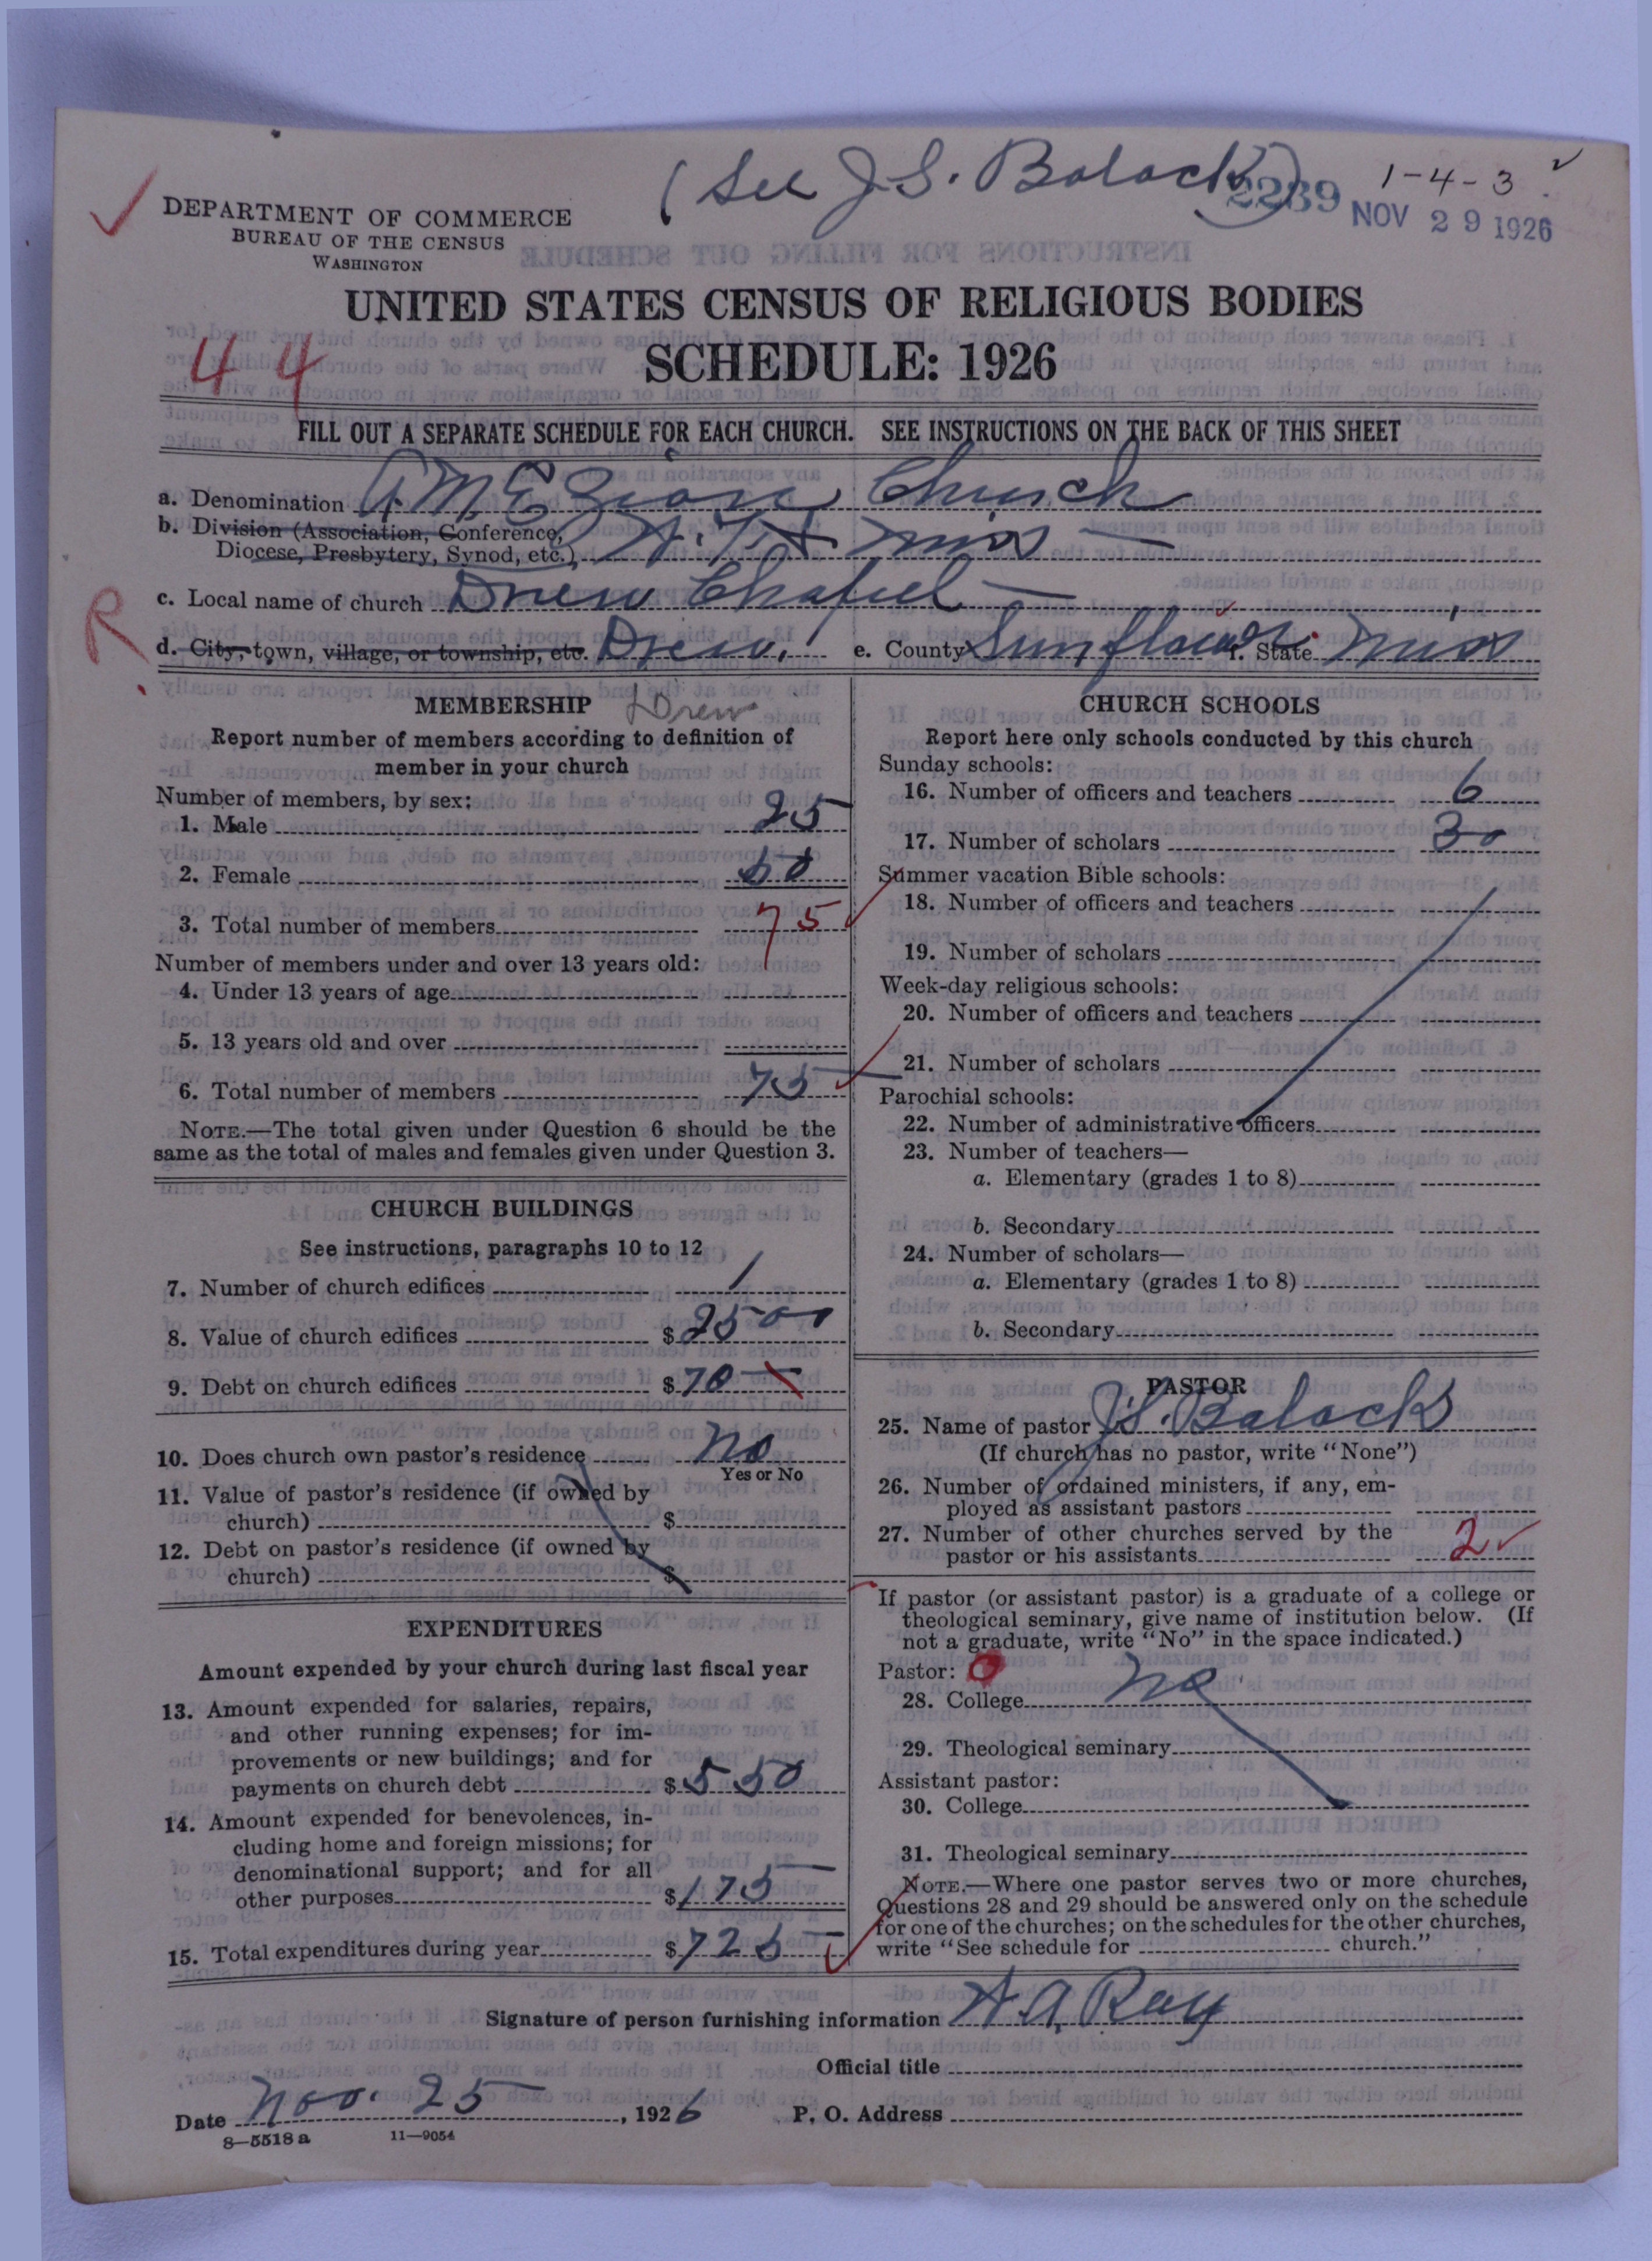 (See J.S. Balock)
2239
1-4-3
NOV 29 1926
DEPARTMENT OF COMMERCE
BUREAU OF THE CENSUS
WASHINGTON
UNITED STATES CENSUS OF RELIGIOUS BODIES
44
SCHEDULE: 1926
FILL OUT A SEPARATE SCHEDULE FOR EACH CHURCH. SEE INSTRUCTIONS ON THE BACK OF THIS SHEET
a. Denomination A.M.E. Zion Church
b. Division (Association, Conference,
Diocese, Presbytery, Synod, etc.) Miss
c. Local name of church Drew Chapel
R
d. City, town, village, or township, etc. Drew. e. County Sunflower f. State Miss
MEMBERSHIP Drew
Report number of members according to definition of
member in your church
Number of members, by sex:
1. Male 25
2. Female 50
3. Total number of members 75
Number of members under and over 13 years old:
4. Under 13 years of age
5. 13 years old and over
6. Total number of members 75
NOTE.—The total given under Question 6 should be the
same as the total of males and females given under Question 3.
CHURCH BUILDINGS
See instructions, paragraphs 10 to 12
7. Number of church edifices 1
8. Value of church edifices $ 2500
9. Debt on church edifices $ 70
10. Does church own pastor's residence No
Yes or No
11. Value of pastor's residence (if owned by
church) $
12. Debt on pastor's residence (if owned by
church) $
EXPENDITURES
Amount expended by your church during last fiscal year
13. Amount expended for salaries, repairs,
and other running expenses; for im-
provements or new buildings; and for
payments on church debt $ 550
14. Amount expended for benevolences, in-
cluding home and foreign missions; for
denominational support; and for all
other purposes $ 175
15. Total expenditures during year $ 725
CHURCH SCHOOLS
Report here only schools conducted by this church
Sunday schools:
16. Number of officers and teachers 6
17. Number of scholars 30
Summer vacation Bible schools:
18. Number of officers and teachers
19. Number of scholars
Week-day religious schools:
20. Number of officers and teachers
21. Number of scholars
Parochial schools:
22. Number of administrative officers
23. Number of teachers—
a. Elementary (grades 1 to 8)
b. Secondary
24. Number of scholars—
a. Elementary (grades 1 to 8)
b. Secondary
PASTOR
25. Name of pastor J.S. Balock
(If church has no pastor, write "None")
26. Number of ordained ministers, if any, em-
ployed as assistant pastors
27. Number of other churches served by the
pastor or his assistants 2
If pastor (or assistant pastor) is a graduate of a college or
theological seminary, give name of institution below. (If
not a graduate, write "No" in the space indicated.)
Pastor: 0
28. College No
29. Theological seminary
Assistant pastor:
30. College
31. Theological seminary
NOTE.—Where one pastor serves two or more churches,
Questions 28 and 29 should be answered only on the schedule
for one of the churches; on the schedules for the other churches,
write "See schedule for church."
Signature of person furnishing information A. A. Ray
Official title
Date Nov. 25, 1926 P. O. Address
8—5518a 11—9054